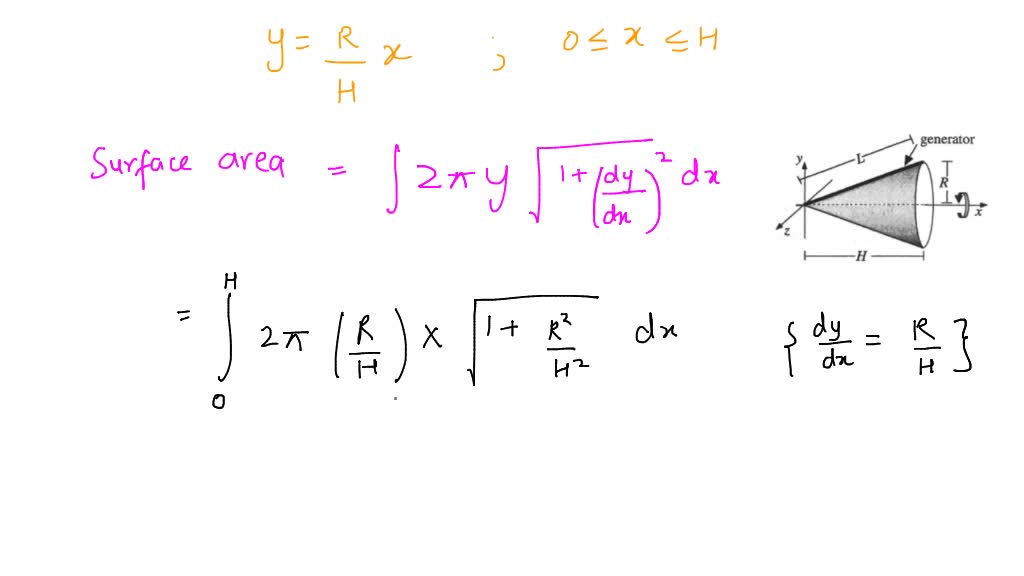 y = R/H x ; 0 ≤ x ≤ H
Surface area = ∫ 2π y √(1 + (dy/dx)² dx
generator
y
L
R
x
z
H
= ∫₀ᴴ 2π (R/H) x √(1 + R²/H²) dx { dy/dx = R/H }